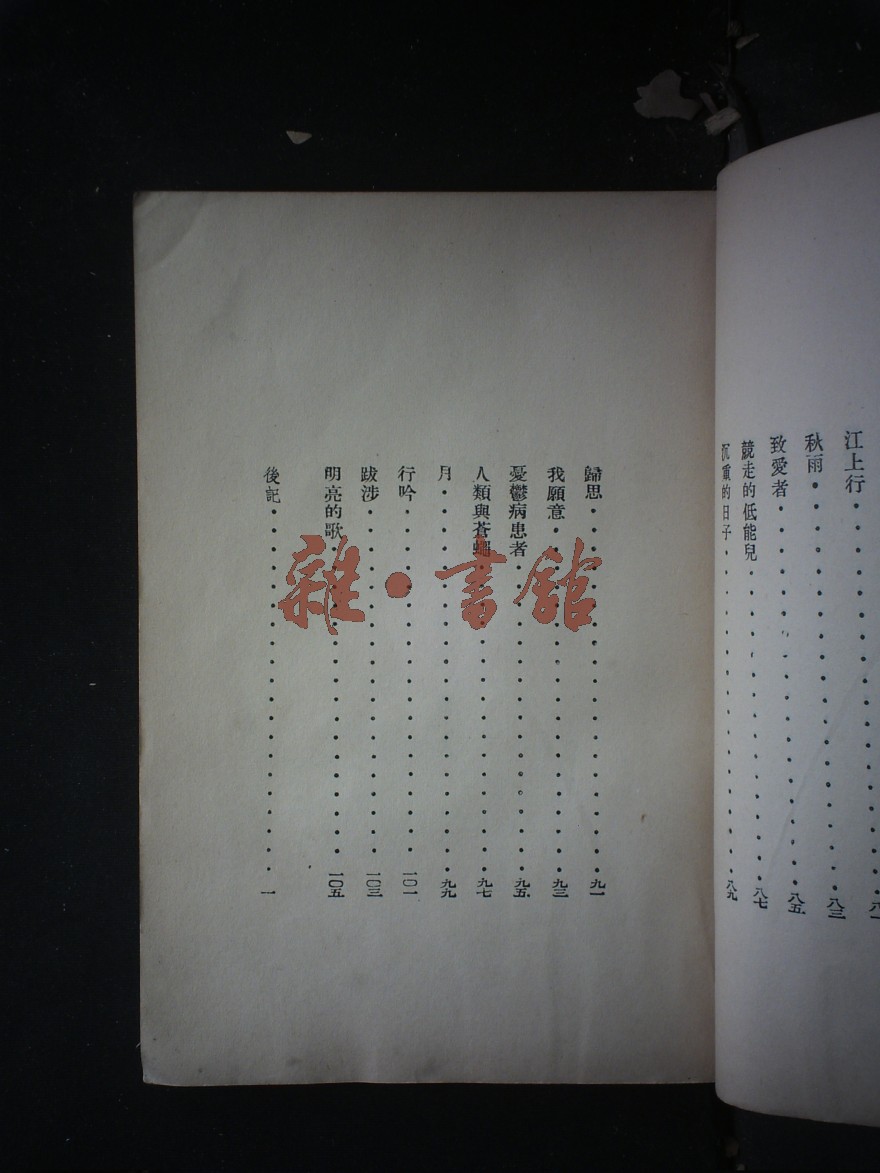 江上行・・・・・・・・・・・・・・八一
秋雨・・・・・・・・・・・・・・八三
致愛者・・・・・・・・・・・・・・八五
競走的低能兒・・・・・・・・・・・・・・八七
沉重的日子・・・・・・・・・・・・・・八九
歸思・・・・・・・・・・・・・・・・九一
我願意・・・・・・・・・・・・・・・九三
憂鬱病患者・・・・・・・・・・・・・九五
人類與蒼蠅・・・・・・・・・・・・・九七
月・・・・・・・・・・・・・・・・・九九
行吟・・・・・・・・・・・・・・・一〇一
跋涉・・・・・・・・・・・・・・・一〇三
明亮的歌・・・・・・・・・・・・・一〇五
後記・・・・・・・・・・・・・・・・一
雜・書館